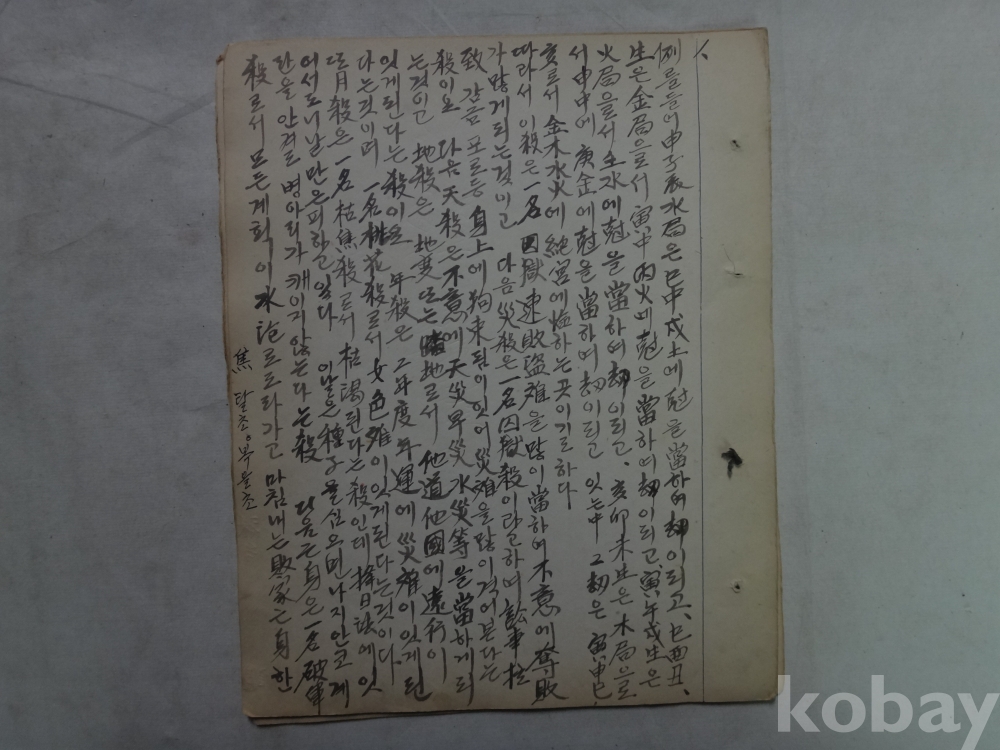 例를들어 申子辰水局은 巳中戊土에 尅을當하여 劫이되고、巳酉丑、
生은 金局으로서 寅中丙火에 尅을當하여 劫이되고 寅午戌生은
火局을로서 壬水에 尅을當하여 劫이되고、亥卯未生은 木局으로
서 申中에 庚金에 尅을當하여 劫이되고 잇는中 그劫은 寅申巳、
亥로서 金木水火에 絶宮에 臨하는 곳이기도하다
따라서 이殺은 一名 囚獄 速敗盜難을 많이當하며 不意에 奪敗
가많게되는것이고 다음 災殺은 一名囚獄殺이라고하며 訟事
致 감금 포로등 身上에 拘束됨이잇어 災難을많이격어본다는
殺이오 다음天殺은 不意에 天災 旱災 水災等을當하게되
는것이고 地殺은 地變 또는 地로서 他道他國에 遠行이
잇게된다는 殺이오 年殺은 그年度年運에 災難이잇게된
다는것이며 一名桃花殺로서 女色難이잇게된다는것이다
또月殺은 一名 枯焦殺로서 枯渴된다는殺인데 擇日法에잇
어서도 이날만은피하고있다 이날은 種子를심으면 나지안코 게
란을 안겨도 병아리가 깨이지않는다는殺 다음亡身은 一名 破軍
殺로서 모든계획이 水泡로도라가고 마침내는 敗家亡身 한
焦 탈초。